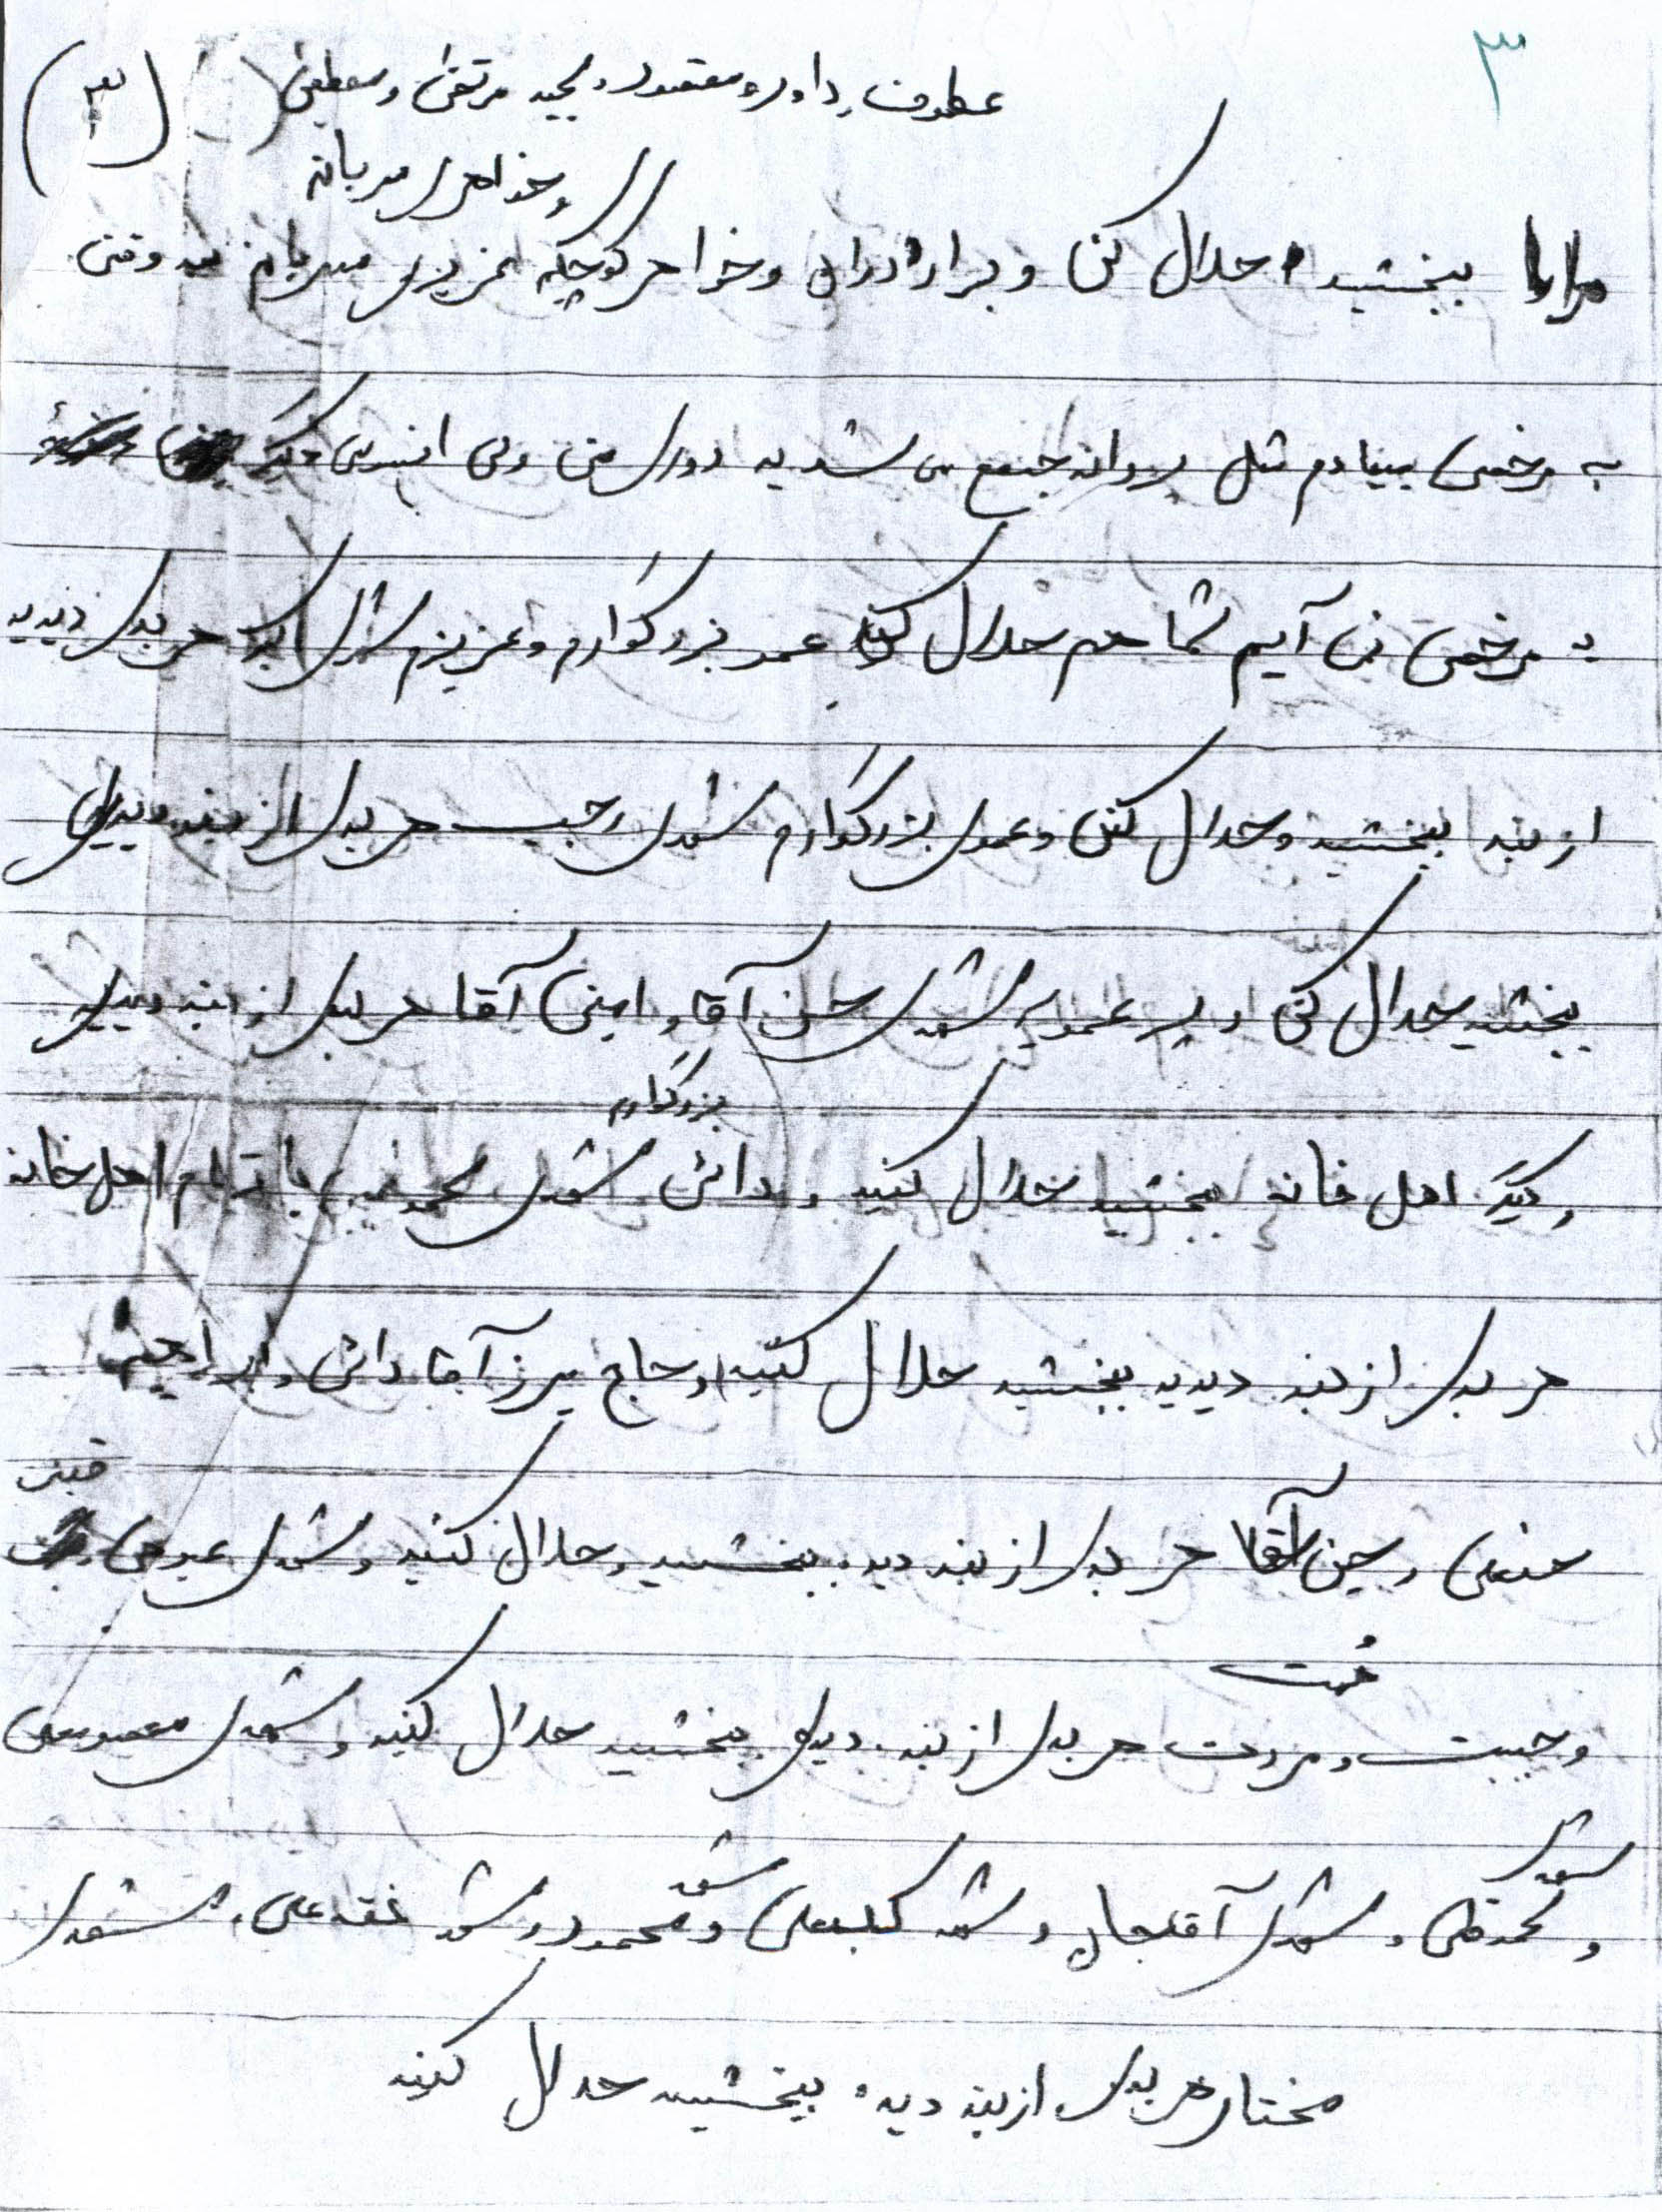 ۳
(۳)
عطوفت داود و مقصود و مجید مرتضی و مصطفی
و خواهر مهربان
مرا ببخشید حلال کنی و برادران و خواهر کوچیکه عزیز مهربانم که وقتی
به مرخصی میادم مثل پروانه جمع می شدید دور من ولی این دیگر
به مرخصی نمی آیم شما هم حلال کنید عمو بزرگوارم و عزیزم مشهدی اکبر هر بدی دیدید
از بنده ببخشید و حلال کنی و عموی بزرگوارم مشهدی رجب هر بدی از بنده دیدی
ببخشید حلال کنی و پسر عمو مشهدی حسن آقا و امین آقا هر بدی از بنده دیدید
و دیگر اهل خانه ببخشید حلال کنید و دائی بزرگوارم مشهدی محمد با تمام اهل خانه
هر بدی از بنده دیدید ببخشید حلال کنید و حاج میرزآقا دائی و ابراهیم
حسنعلی و حسین آقا هر بدی از بنده دیده ببخشید و حلال کنید و مشهدی
و حبیبت و مروت هر بدی از بنده دیدی ببخشید حلال کنید و مشهدی معصومعلی
و مشهدی محمدقلی و مشهدی آقاجان و مشهد کلبعلی و مشهد محمود و مشهد نقدعلی و مشهدی
مختار هر بدی از بنده دیده ببخشید حلال کنید